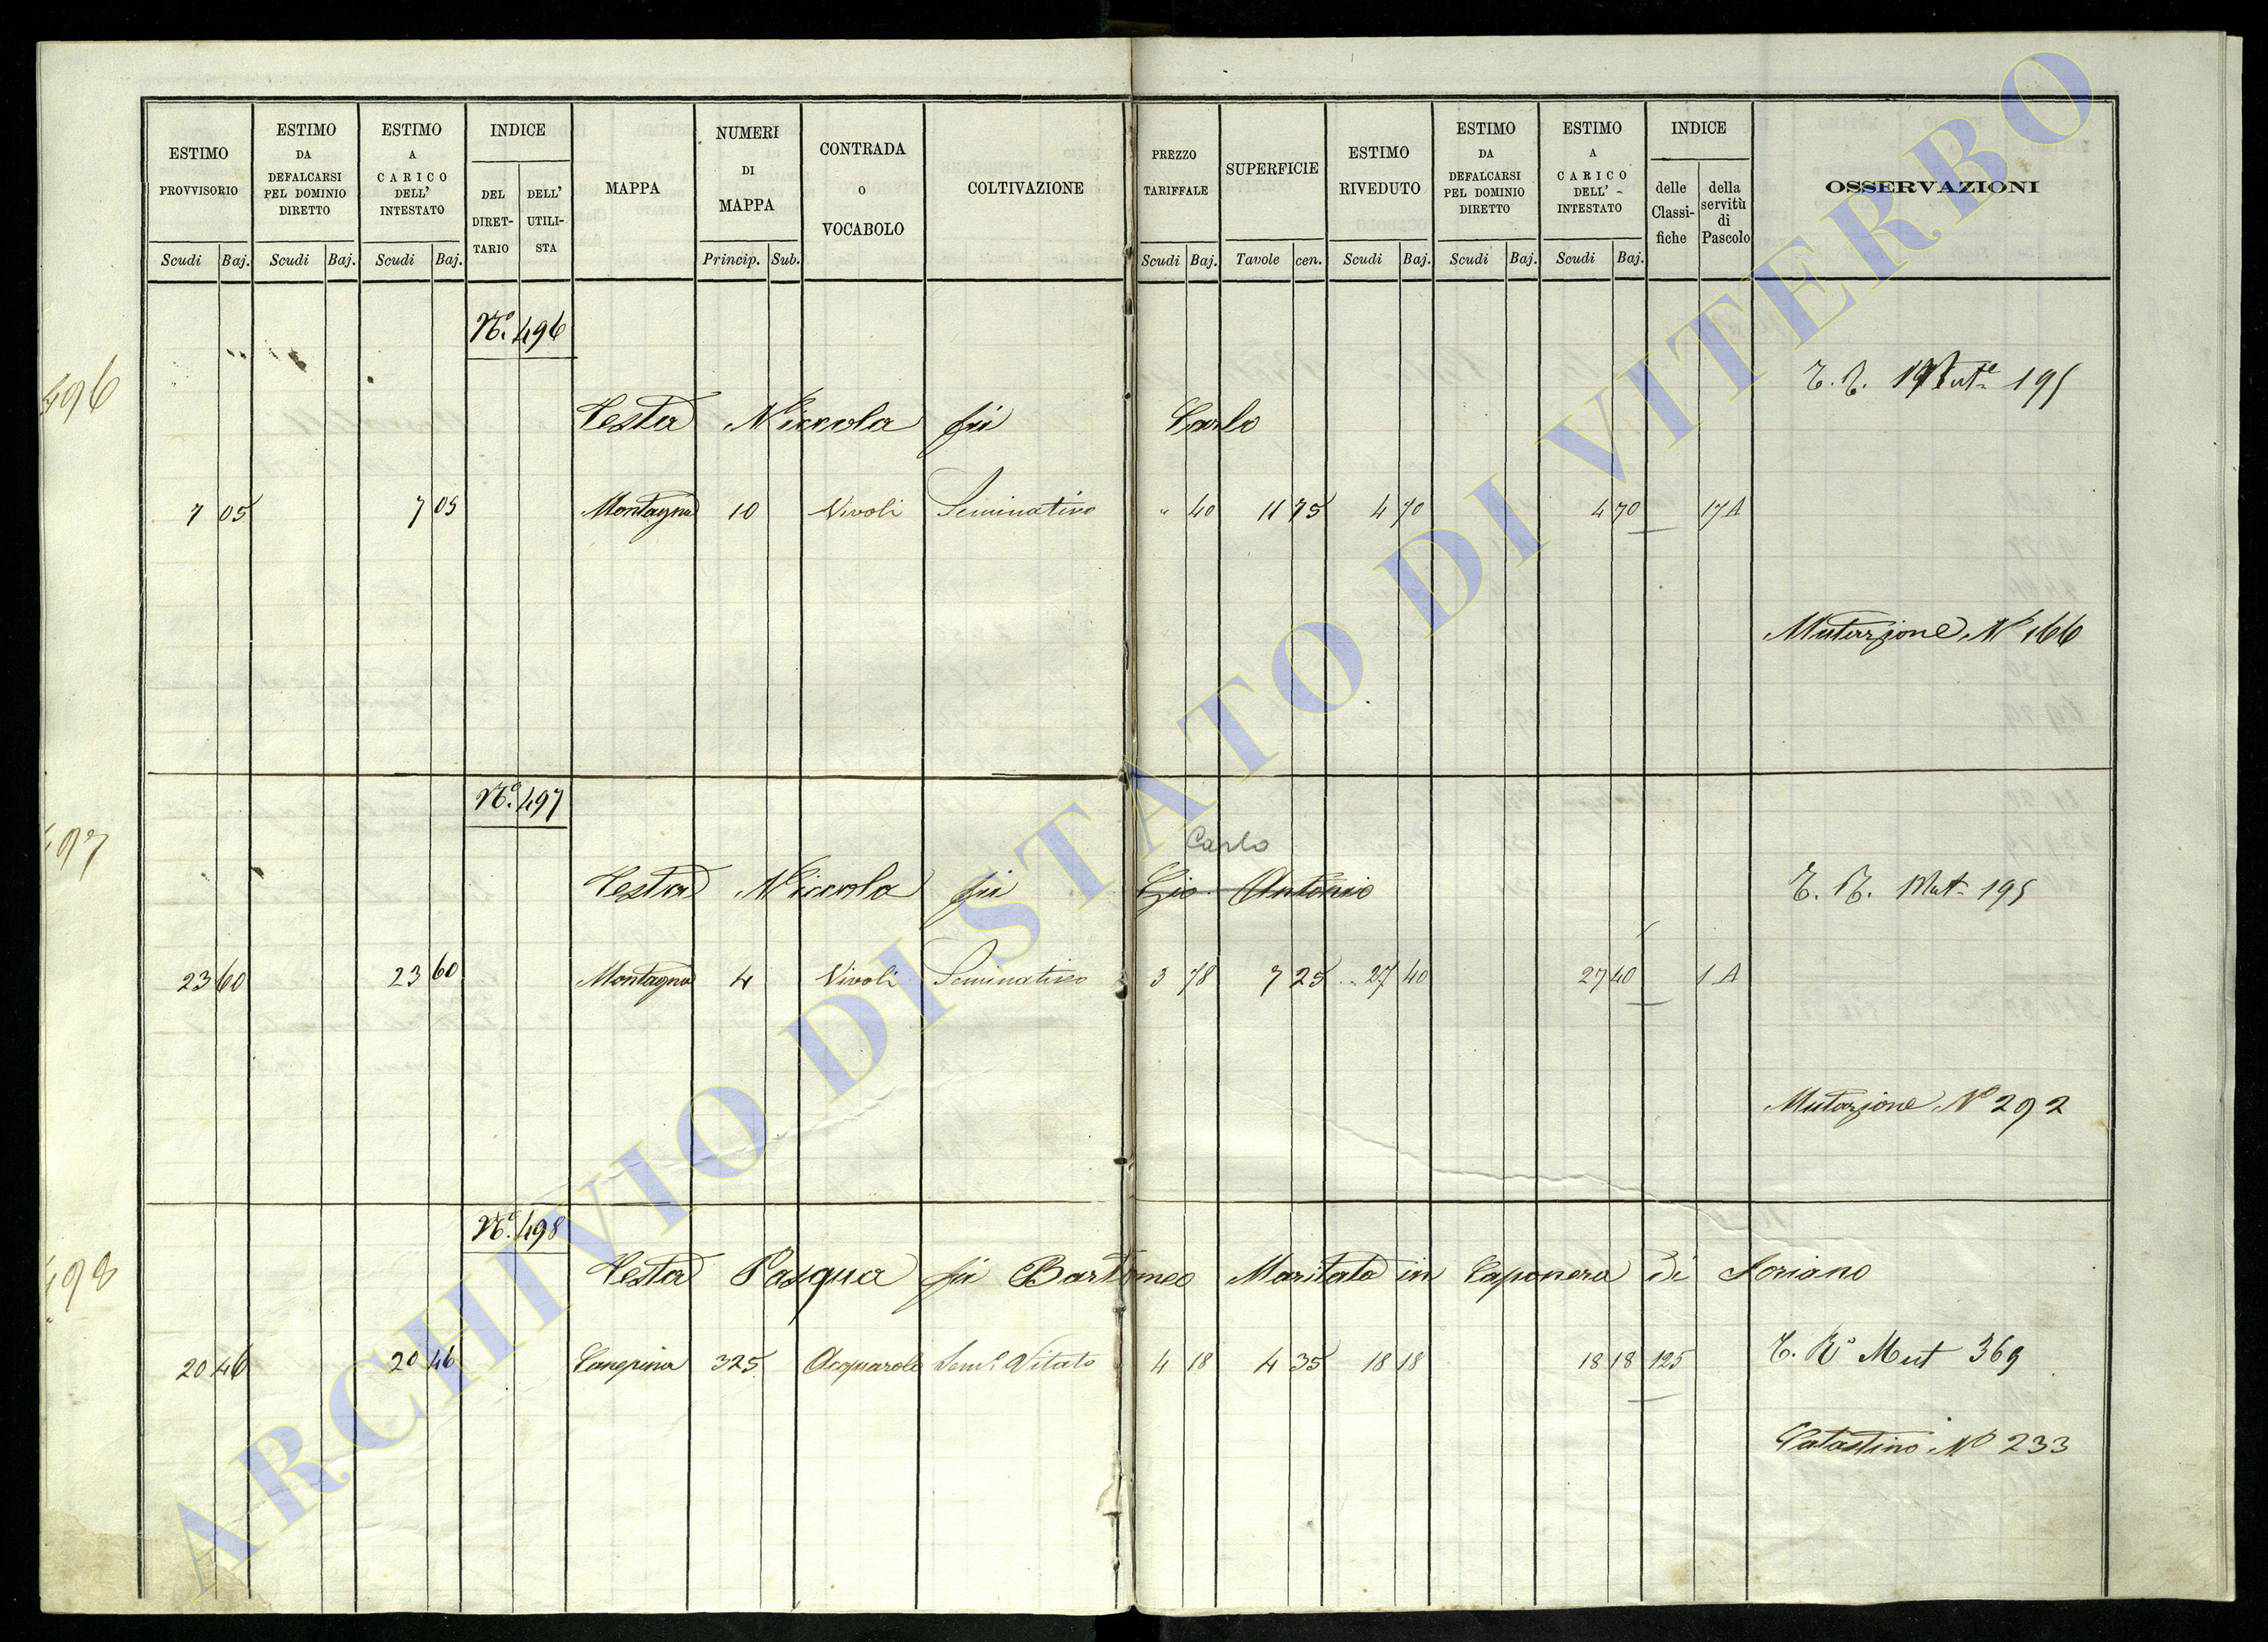 ESTIMO PROVVISORIO
ESTIMO DA DEFALCARSI PEL DOMINIO DIRETTO
ESTIMO A CARICO DELL' INTESTATO
INDICE
DEL DIRET- TARIO
DELL' UTILI- STA
MAPPA
NUMERI DI MAPPA
CONTRADA O VOCABOLO
COLTIVAZIONE
PREZZO TARIFFALE
SUPERFICIE
ESTIMO RIVEDUTO
ESTIMO DA DEFALCARSI PEL DOMINIO DIRETTO
ESTIMO A CARICO DELL' INTESTATO
INDICE
delle Classi- fiche
della servitù di Pascolo
OSSERVAZIONI
Scudi Baj. Scudi Baj. Scudi Baj. Princip. Sub. Scudi Baj. Tavole cen. Scudi Baj. Scudi Baj. Scudi Baj.
Nº. 496
496
T. R. Mut. 195
Testa Niccola fu Carlo
7 05 7 05 Montagna 10 Vivoli Seminativo " 40 11 75 4 70 4 70 17 A
Mutazione Nº 166
Nº. 497
497
Carlo
Testa Niccola fu Gio. Antonio
T. R. Mut. 195
23 60 23 60 Montagna 4 Vivoli Seminativo 3 78 7 25 27 40 27 40 1 A
Mutazione Nº 292
Nº. 498
498
Testa Pasqua fu Bartomeo Maritata in Caponera di Soriano
20 46 20 46 Canepina 325 Acquarole Semº. Vitato 4 18 4 35 18 18 18 18 125
T. Rº Mut 369
Catastino Nº 233
ARCHIVIO DI STATO DI VITERBO